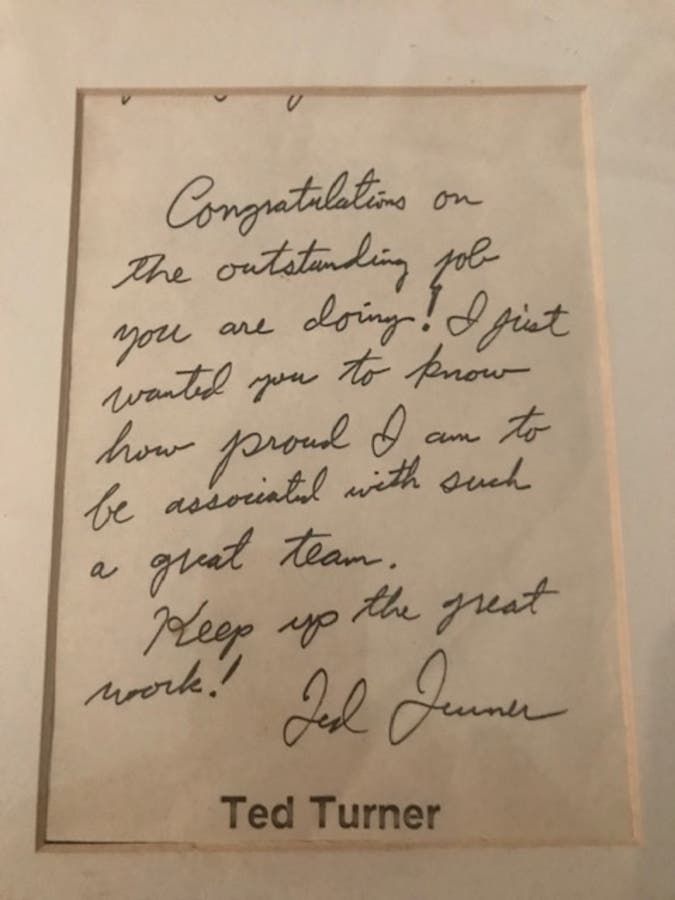 Congratulations on
the outstanding job
you are doing! I just
wanted you to know
how proud I am to
be associated with such
a great team.
Keep up the great
work! Ted Turner
Ted Turner